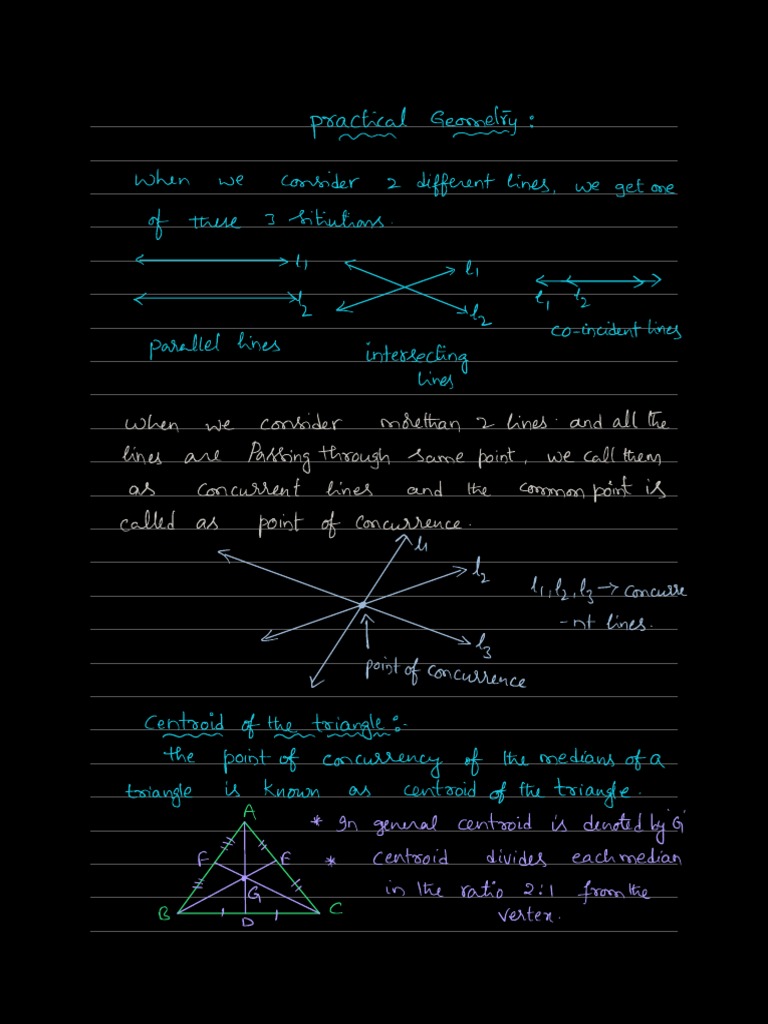 practical Geometry:
When we consider 2 different lines, we get one
of these 3 sitiutions.
l1 l1
l2 l2 l1 l2
parallel lines intersecting co-incident lines
lines
When we consider morethan 2 lines and all the
lines are Passing through same point, we call them
as concurrent lines and the common point is
called as point of concurrence.
l1
l2 l1, l2, l3 → concurre
l3 -nt lines.
point of concurrence
Centroid of the triangle:-
the point of concurrency of the medians of a
triangle is known as centroid of the triangle.
A * In general centroid is denoted by 'G'
F E * Centroid divides each median
G in the ratio 2:1 from the
B D C vertex.